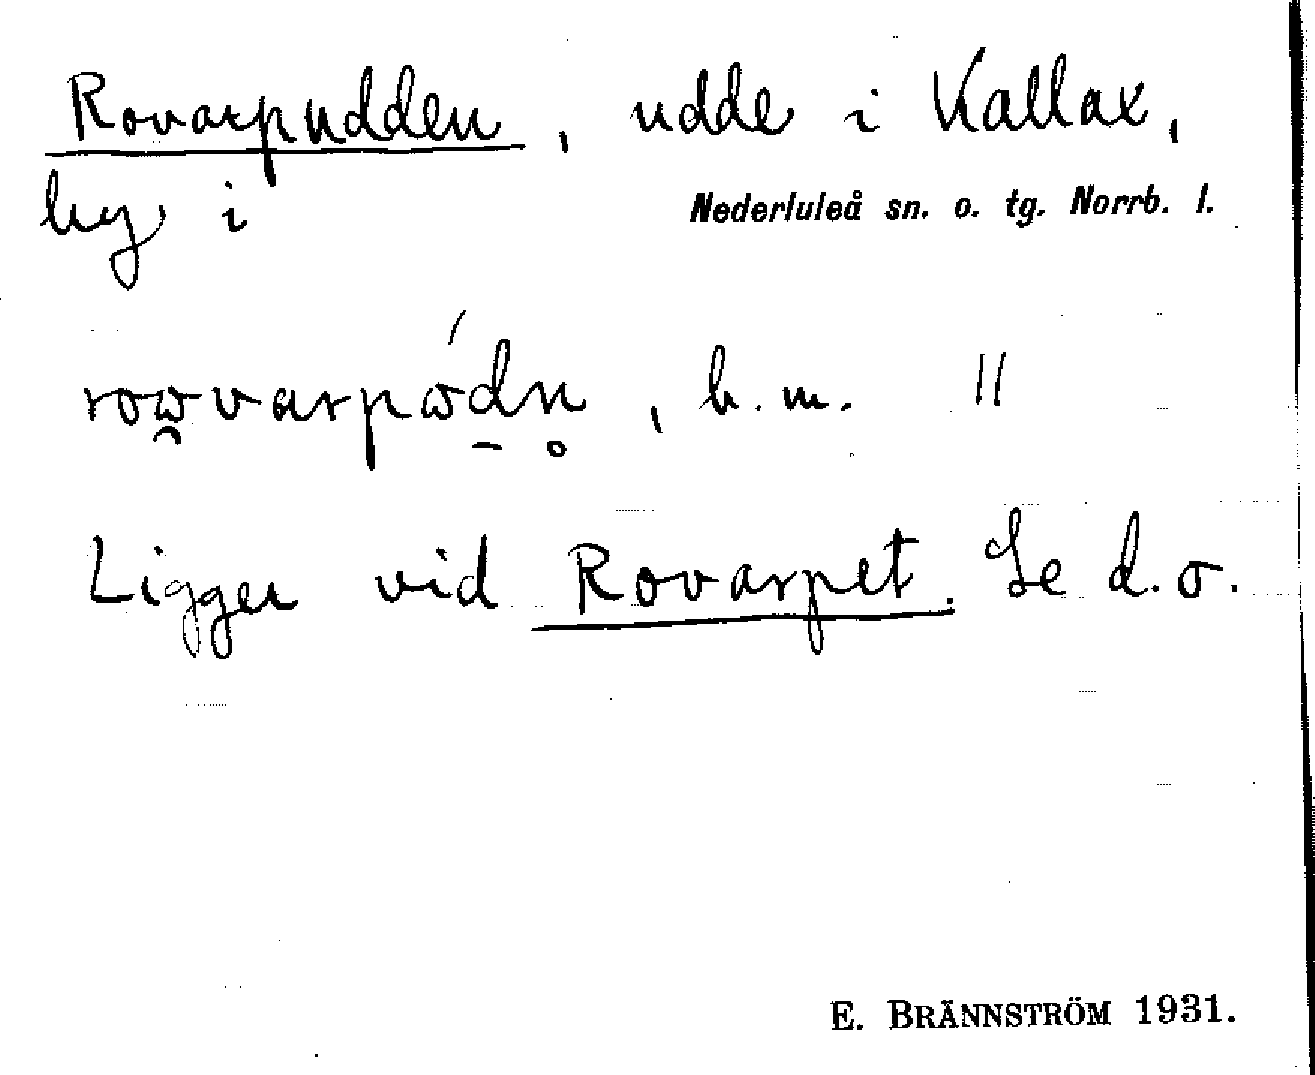 Rovarpudden, udde i Kallax,
by i Nederluleå sn. o. tg. Norrb. l.
roω̯varpώd̠n̥, b. m. //
Ligger vid Rovarpet. Se d. o.
E. BRÄNNSTRÖM 1931.